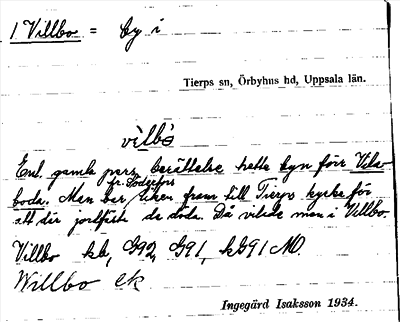 1 Villbo = by i
Tierps sn, Örbyhus hd, Uppsala län.
vìlbò
Enl. gamla pers. berättelse hette byn förr Vila-
fr. Söderfors
boda. Man bar liken fram till Tierps kyrka för
att där jordfästa de döda. Då vilade man i Villbo.
Villbo kb, G92, G91, kG91 MO.
Willbo ek
Ingegärd Isaksson 1934.